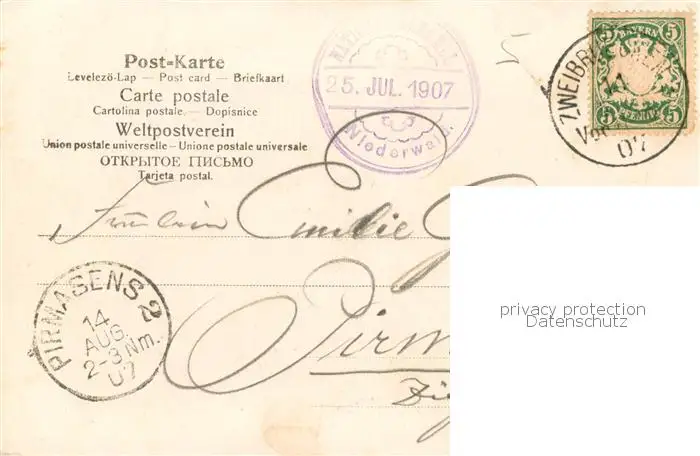 Post-Karte
Levelezö-Lap — Post card — Briefkaart
Carte postale
Cartolina postale — Dopisnice
Weltpostverein
Union postale universelle — Unione postale universale
ОТКРЫТОЕ ПИСЬМО
Tarjeta postal.
25. JUL. 1907
Niederwald.
5
BAYERN
5 5
PFENNIG
ZWEIBRÜ
07
Fräulein Emilie G
Pirm
PIRMASENS 2
14
AUG.
2-3 Nm.
07
privacy protection
Datenschutz